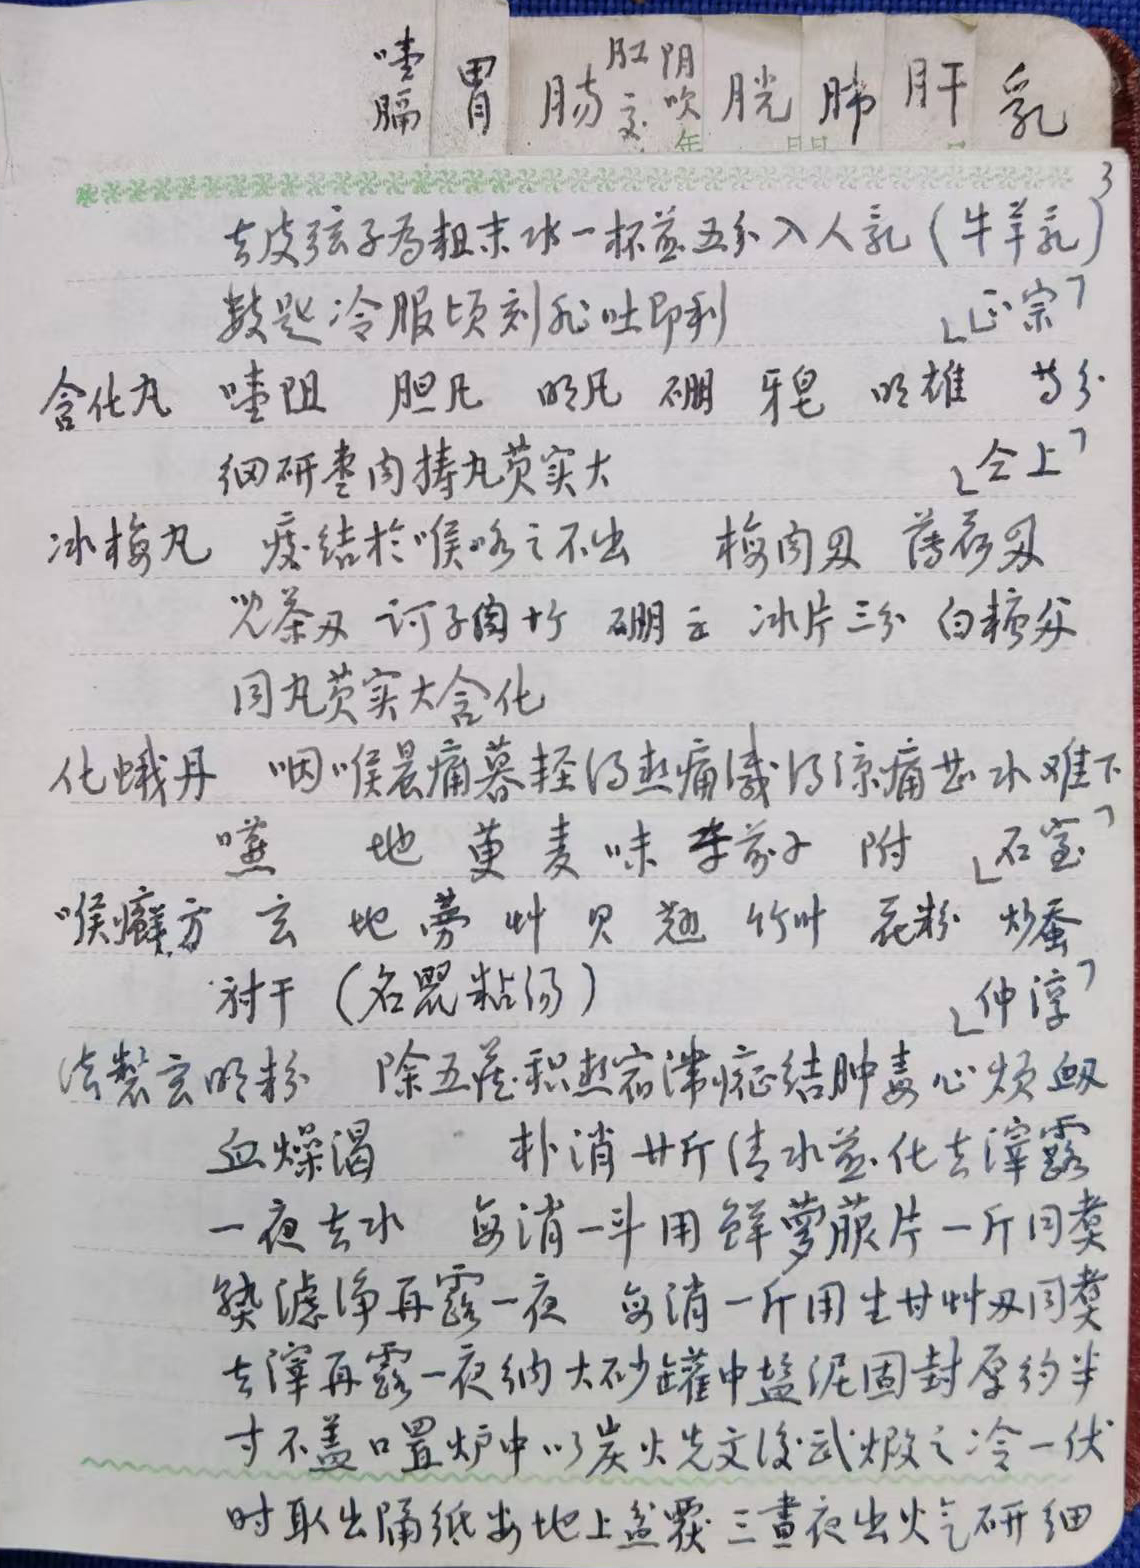 噎膈 胃 肠 肛交 阴吹 胱 肺 肝 乳
3
去皮弦子为粗末水一杯煎五分入人乳(牛羊乳)
数匙冷服顷刻非吐即利 「正宗」
含化丸 噎阻 胆凡 明凡 硼 牙皂 明雄 等分
细研枣肉捣丸芡实大 「仝上」
冰梅丸 痰结於喉咯之不出 梅肉 薄荷
儿茶 诃子肉 硼 冰片三分 白糖
同丸芡实大含化
化蛾丹 咽喉晨痛暮轻得热痛减得凉痛甚水难下
嚥 地 萸 麦 味 芥子 附 「石室」
喉癣方 玄 地 蒡 艸 贝 翘 竹叶 花粉 炒蚕
射干 (名鼠粘汤) 「仲淳」
法製玄明粉 除五藏积热宿滞癥结肿毒心烦衂
血燥渴 朴消廿斤清水煎化去滓露
一夜去水 每消一斗用鲜萝菔片一斤同煑
熟滤净再露一夜 每消一斤用生甘艸刄同煑
去滓再露一夜纳大砂罐中盐泥固封厚约半
寸不盖口置炉中以炭火先文後武煅之冷一伏
时取出隔纸安地上盆覆三晝夜出火气研细